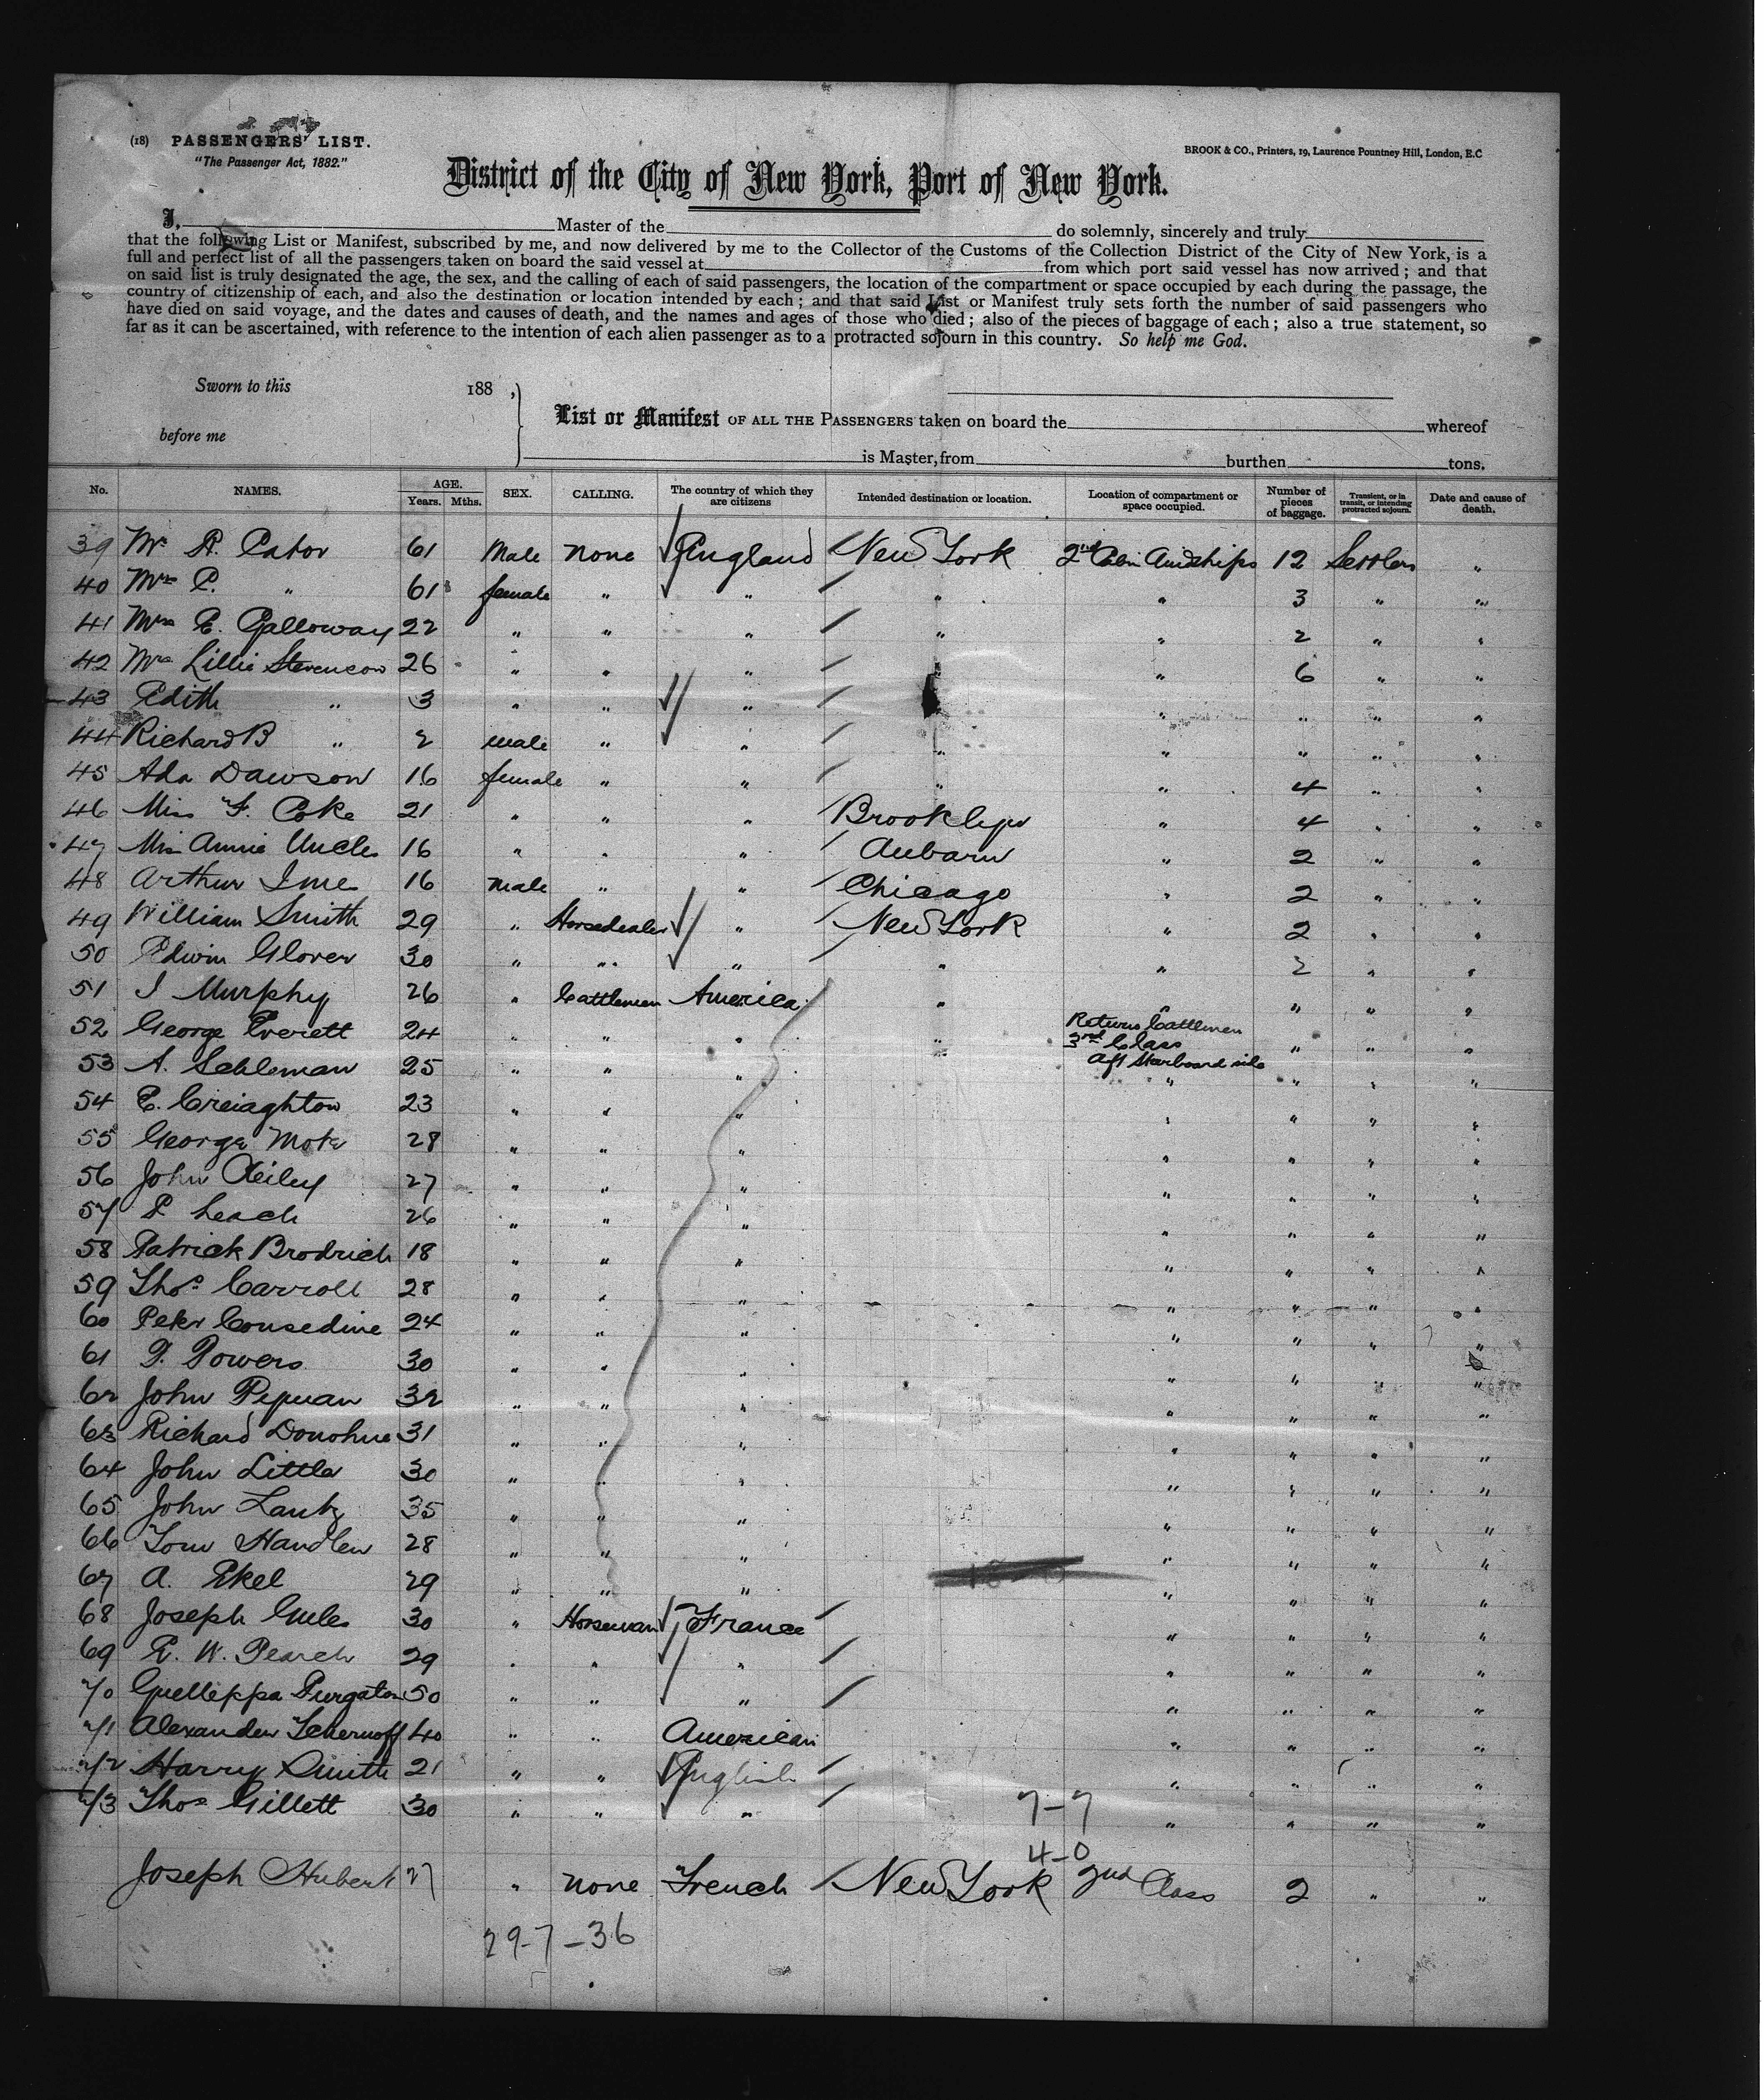 (18) PASSENGERS' LIST.
"The Passenger Act, 1882."
BROOK & CO., Printers, 19, Laurence Pountney Hill, London, E.C
District of the City of New York, Port of New York.
I, Master of the do solemnly, sincerely and truly
that the following List or Manifest, subscribed by me, and now delivered by me to the Collector of the Customs of the Collection District of the City of New York, is a
full and perfect list of all the passengers taken on board the said vessel at from which port said vessel has now arrived; and that
on said list is truly designated the age, the sex, and the calling of each of said passengers, the location of the compartment or space occupied by each during the passage, the
country of citizenship of each, and also the destination or location intended by each; and that said List or Manifest truly sets forth the number of said passengers who
have died on said voyage, and the dates and causes of death, and the names and ages of those who died; also of the pieces of baggage of each; also a true statement, so
far as it can be ascertained, with reference to the intention of each alien passenger as to a protracted sojourn in this country. So help me God.
Sworn to this 188 ,
before me
List or Manifest OF ALL THE PASSENGERS taken on board the whereof
is Master, from burthen tons.
No. NAMES. AGE. Years. Mths. SEX. CALLING. The country of which they are citizens Intended destination or location. Location of compartment or space occupied. Number of pieces of baggage. Transient, or in transit, or intending protracted sojourn. Date and cause of death.
39 Mr A. Cator 61 Male none England New York 2nd Cabin Amidships 12 Settlers "
40 Mrs C. " 61 female " " " " 3 " "
41 Mrs E. Galloway 22 " " " " " 2 " "
42 Mrs Lillie Stevenson 26 " " " " " 6 " "
43 Edith " 3 " " " " " " "
44 Richard B " 2 male " " " " " " "
45 Ada Dawson 16 female " " " " 4 " "
46 Miss F. Coke 21 " " " Brooklyn " 4 " "
47 Miss Annie Uncles 16 " " " Auburn " 2 " "
48 Arthur 16 male " " Chicago " 2 " "
49 William Smith 29 " Horsedealer " New York " 2 " "
50 Edwin Glover 30 " " " " " 2 " "
51 J Murphy 26 " Cattlemen America " " " " "
52 George Everett 24 " " " " Return Cattlemen 3rd Class Aft Starboard side " " "
53 A. Sehleman 25 " " " " " " "
54 E. Creiaghton 23 " " " " " " "
55 George Mote 28 " " " " " " "
56 John Reiley 27 " " " " " " "
57 P Leach 26 " " " " " " "
58 Patrick Brodrich 18 " " " " " " "
59 Thos Carroll 28 " " " " " " "
60 Peter Consedine 24 " " " " " " "
61 P. Powers 30 " " " " " " "
62 John 32 " " " " " " "
63 Richard Donohue 31 " " " " " " "
64 John Little 30 " " " " " " "
65 John Lantz 35 " " " " " " "
66 Tom Handlen 28 " " " " " " "
67 A. Ekel 29 " " " " " " "
68 Joseph 30 " Horseman France " " " "
69 E. W. Pearch 29 " " " " " " "
70 Guelleppa Purgaton 50 " " " " " " "
71 Alexander Tchernoff 40 " " American " " " "
72 Harry Smith 21 " " English " " " "
73 Thos Gillett 30 " " " " " " "
7-7
4-0
Joseph Hubert 27 " none French New York 2nd Class 2 " "
29-7-36